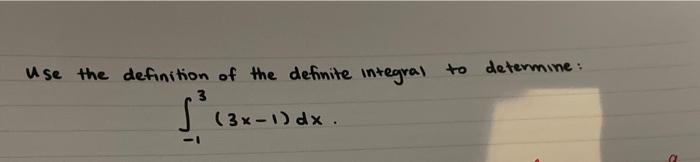 Use the definition of the definite integral to determine:
∫_{-1}^{3} (3x-1) dx.